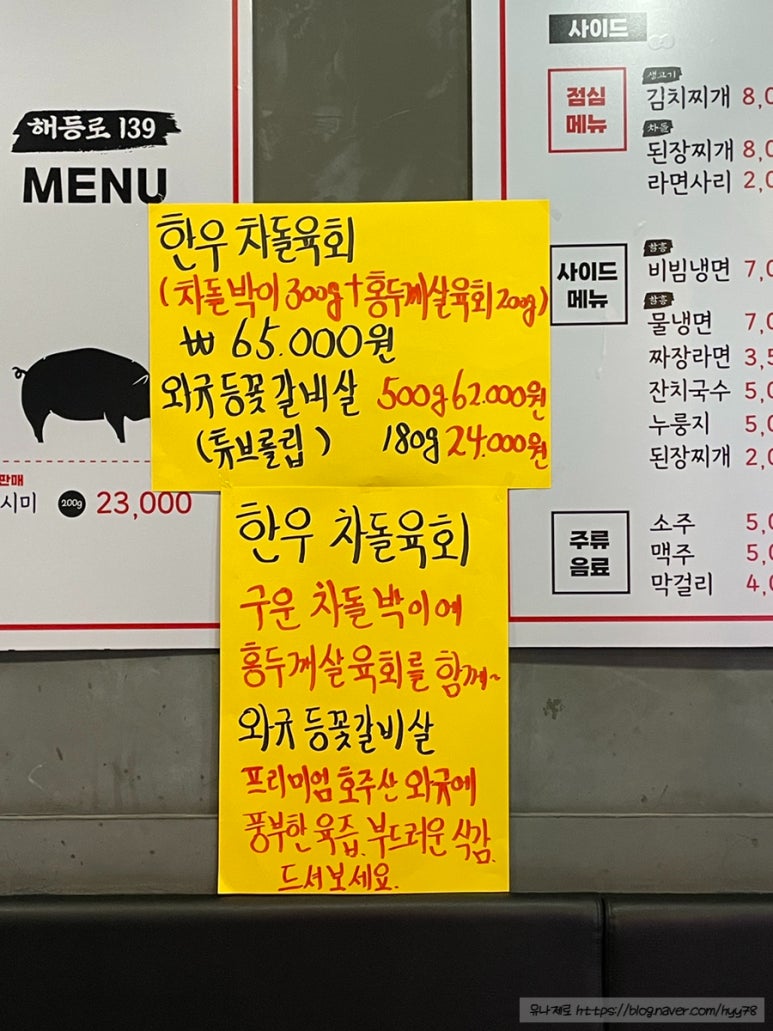 해등로 139
MENU
판매
시미 200g 23,000
한우 차돌육회
(차돌박이 300g+홍두깨살육회 200g)
₩ 65.000원
와규등꽃갈비살 500g 62.000원
(튜브롤립) 180g 24.000원
한우 차돌육회
구운 차돌박이에
홍두깨살육회를 함께~
와규등꽃갈비살
프리미엄 호주산 와규에
풍부한 육즙. 부드러운 식감.
드셔보세요.
사이드
점심
메뉴
생고기
김치찌개 8,0
차돌
된장찌개 8,0
라면사리 2,0
사이드
메뉴
함흥
비빔냉면 7,0
함흥
물냉면 7,0
짜장라면 3,5
잔치국수 5,0
누룽지 5,0
된장찌개 2,0
주류
음료
소주 5,0
맥주 5,0
막걸리 4,0
유나제로 https://blog.naver.com/hyy78